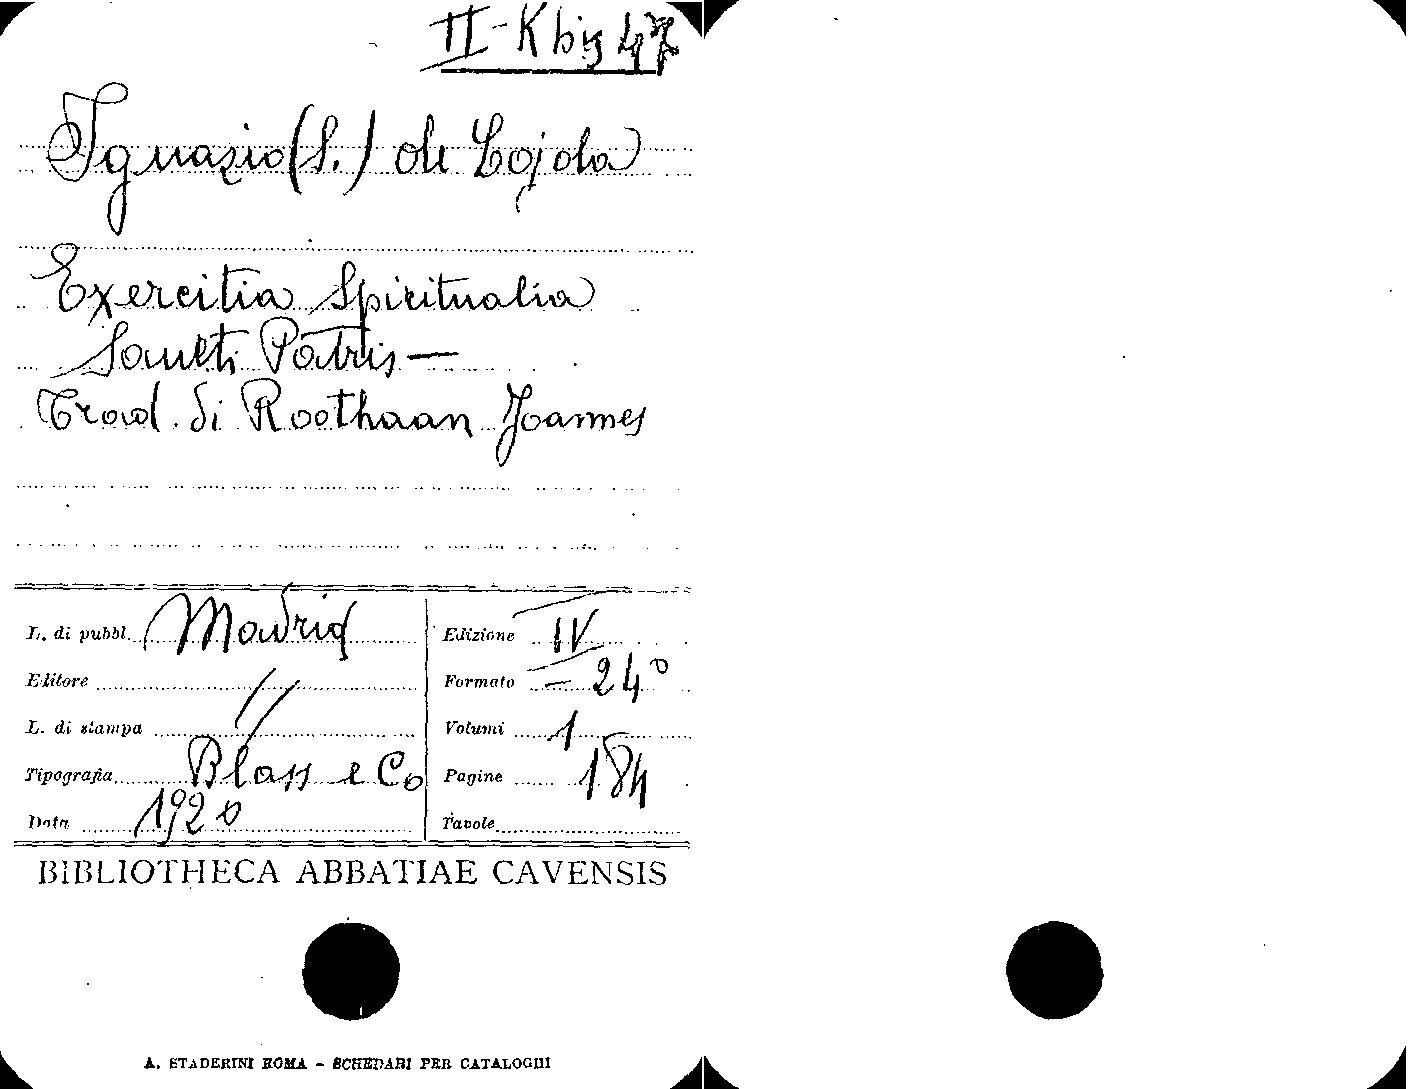 II-K bis 47
Ignazio (S.) de Lojola
Exercitia Spiritualia
Sancti Patris —
Trad. di Roothaan Joannes
L. di pubbl. Madrid
Editore "
L. di stampa
Tipografia Blass e Co
Data 1920
Edizione IV
Formato — 24°
Volumi 1
Pagine 184
Tavole
BIBLIOTHECA ABBATIAE CAVENSIS
A. STADERINI ROMA - SCHEDARI PER CATALOGHI